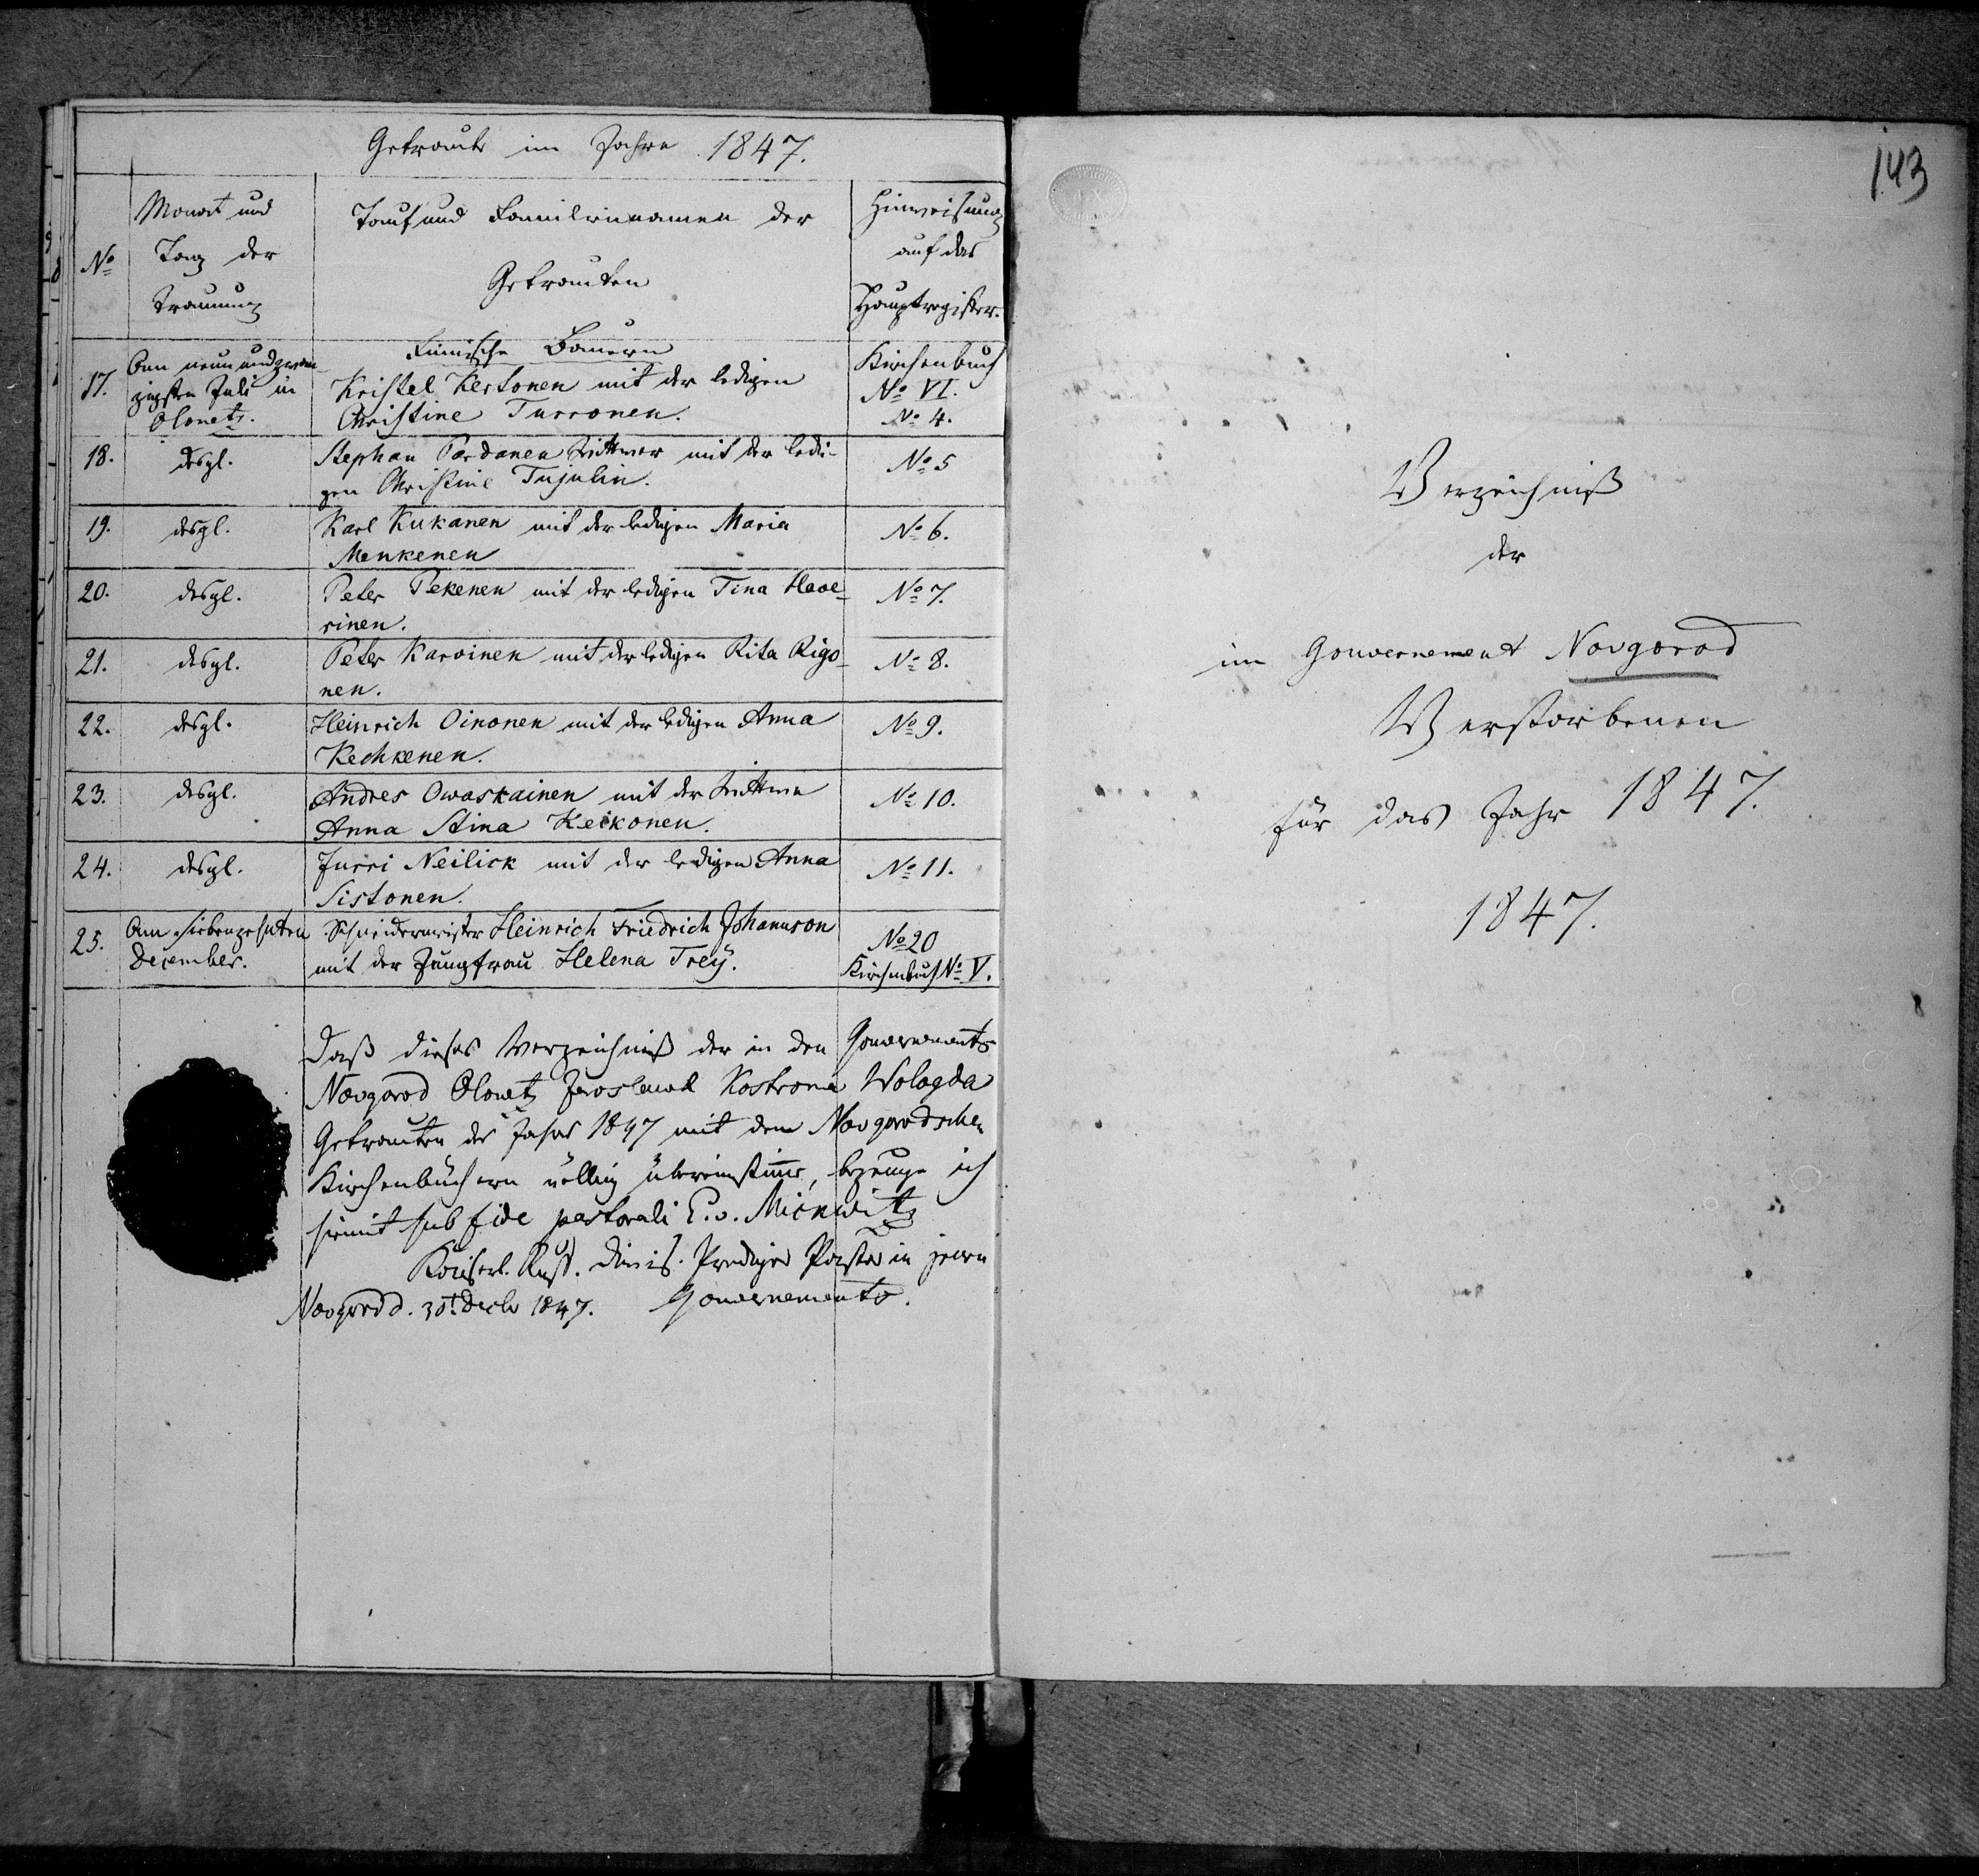 Getraute im Jahre 1847.
№
Monat und
Tag der
Trauung
Tauf und Familiennamen der
Getrauten
Hinweisung
auf das
Hauptregister.
Finnische Bauern
17.
Am neun und zwan-
zigsten Juli in
Olonetz.
Kristel Kertonen mit der ledigen
Christine Turronen.
Kirchenbuch
№ VI.
№ 4.
18.
desgl.
Stephan Pardanen Wittwer mit der ledi-
gen Christine Tujulin.
№ 5
19.
desgl.
Karl Kukanen mit der ledigen Maria
Menkenen
№ 6.
20.
desgl.
Peter Pekenen mit der ledigen Tina Have-
rinen.
№ 7.
21.
desgl.
Peter Karvinen mit der ledigen Rita Rigo-
nen.
№ 8.
22.
desgl.
Heinrich Oinonen mit der ledigen Anna
Kechkenen.
№ 9.
23.
desgl.
Andres Owaskainen mit der Wittwe
Anna Stina Keikonen.
№ 10.
24.
desgl.
Jurri Neilick mit der ledigen Anna
Sistonen.
№ 11.
25.
Am siebenzehnten
December.
Schneidermeister Heinrich Friedrich Johannson
mit der Jungfrau Helena Treÿ.
№ 20
Kirchenbuch № V.
Daß dieses Verzeichniß der in den Gouvernements
Novgorod Olonetz Jaroslawl Kostroma Wologda
Getrauten des Jahres 1847 mit dem Novgorodschen
Kirchenbüchern völlig übereinstimme, bezeuge ich
hiemit sub fide pastorali C. v. Mickwitz
Kaiserl. Russ. Divis. Prediger Pastor in jenen
Novgorod d. 30t. Decbr 1847. Gouvernements.
143
Verzeichniß
der
im Gouvernement Novgorod
Verstorbenen
für das Jahr 1847.
1847.